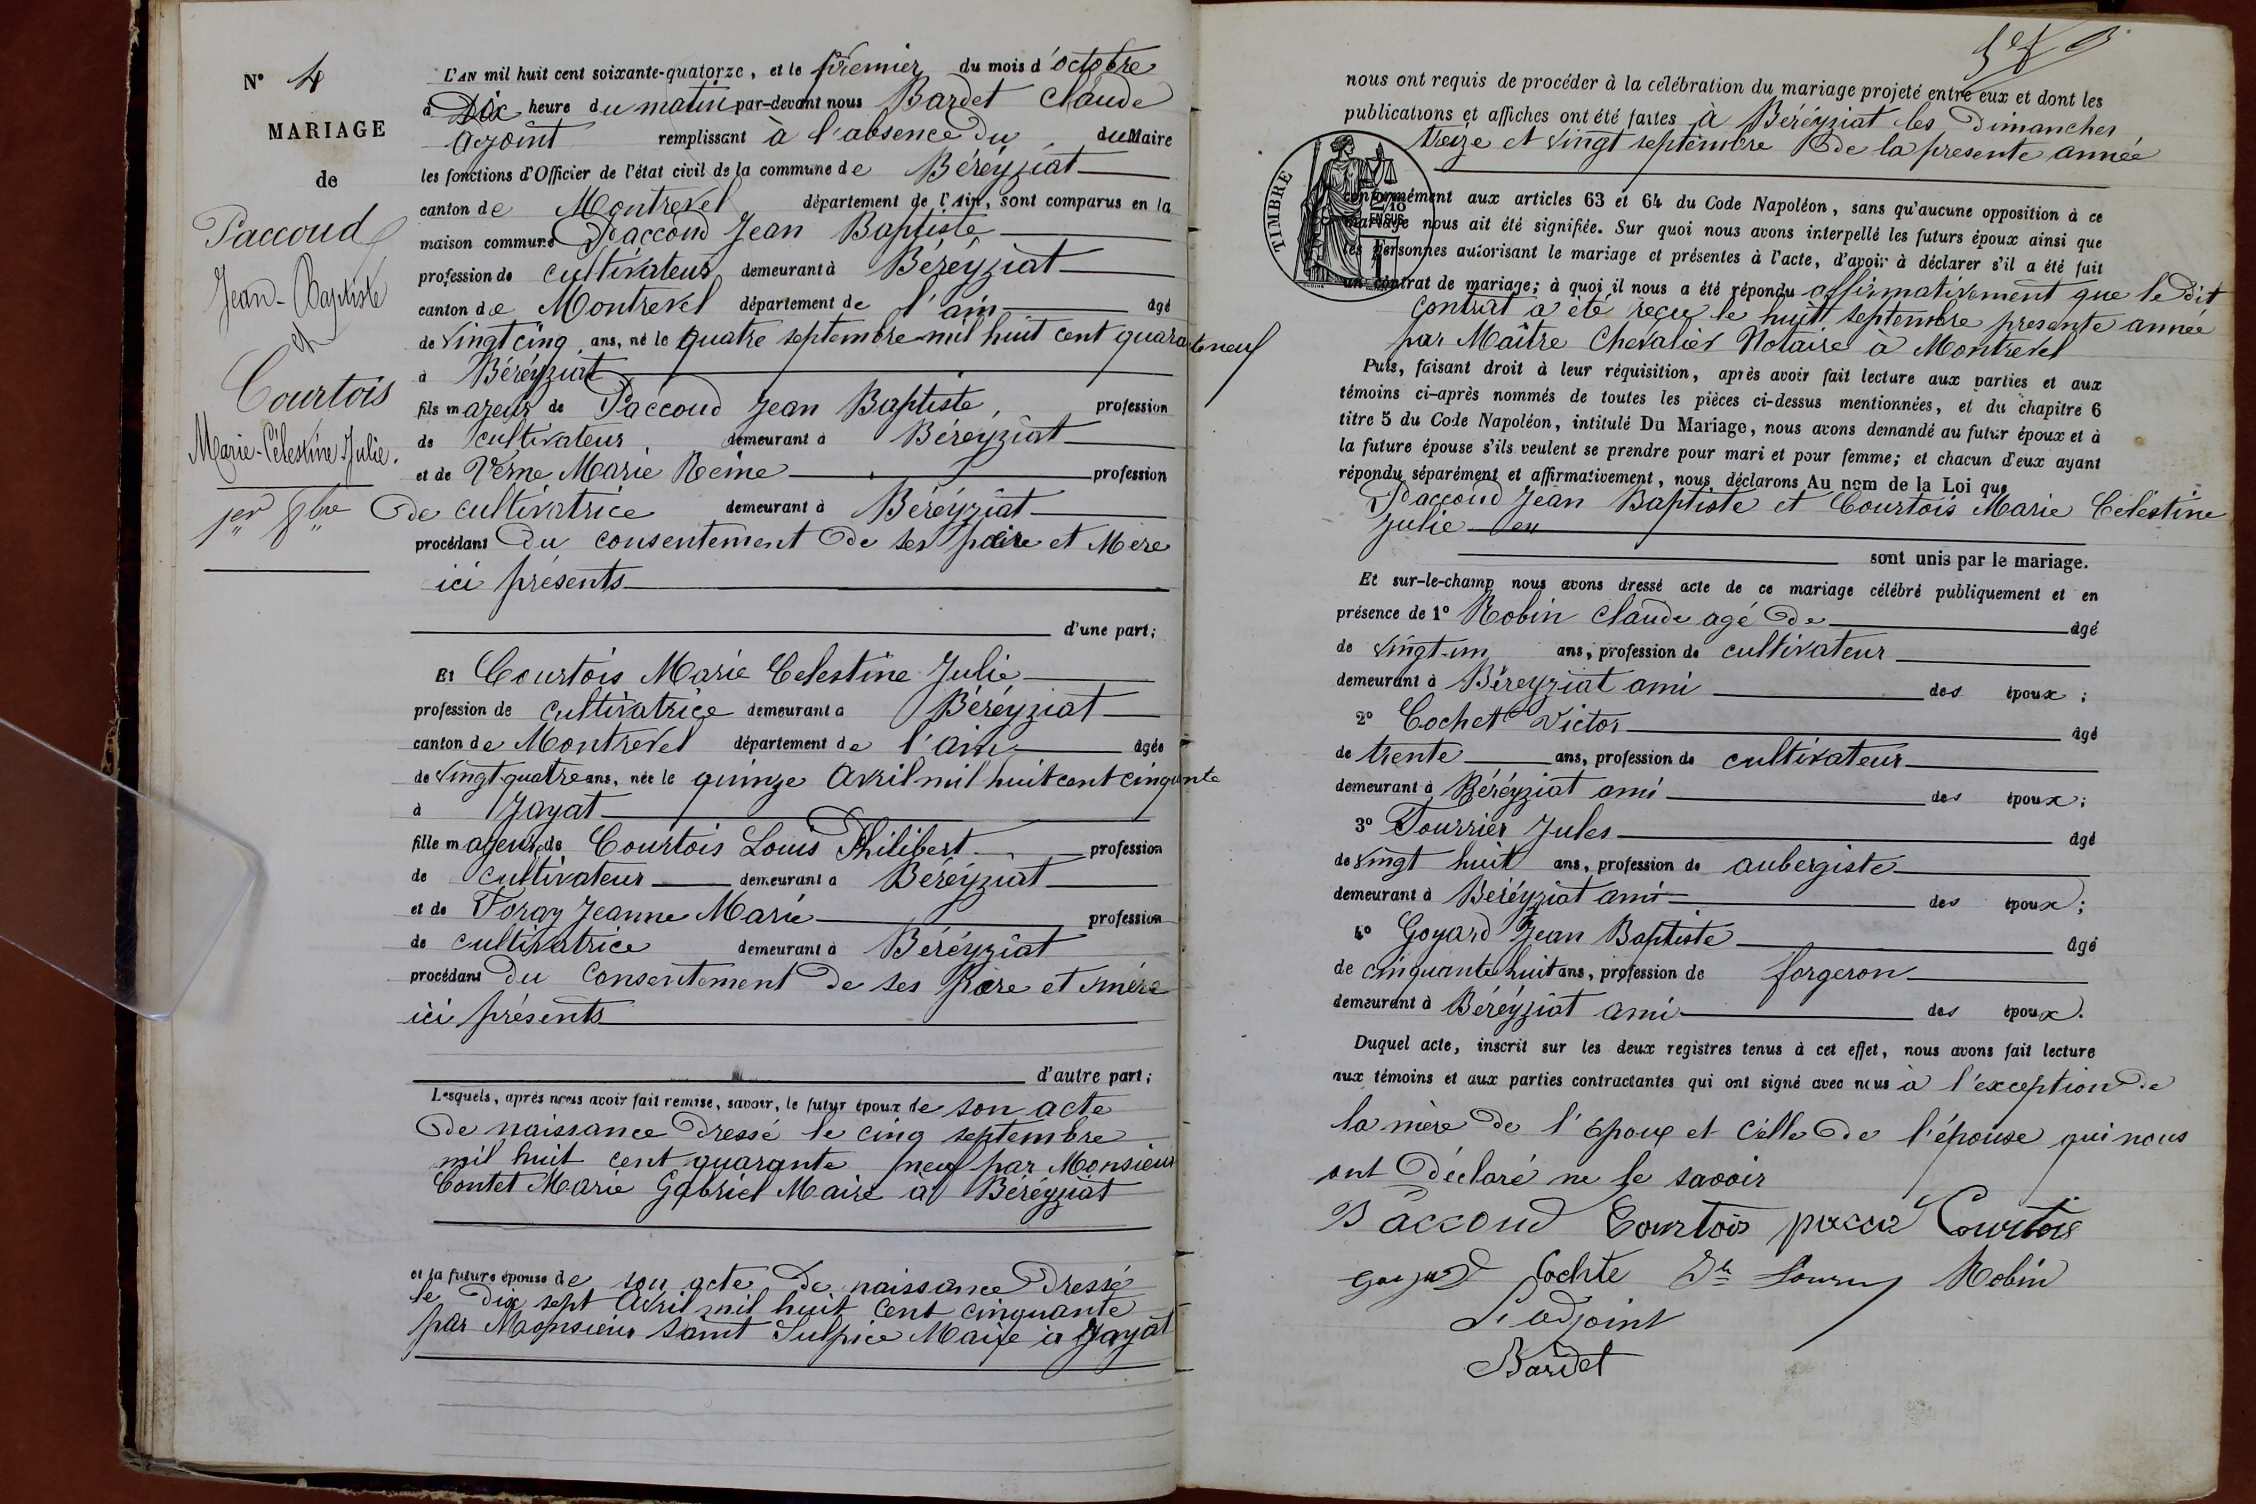 N° 4
MARIAGE
de
Paccoud
Jean-Baptiste
et
Courtois
Marie-Célestine Julie.
1er 8bre
L'AN mil huit cent soixante-quatorze, et le premier du mois d'octobre
à Dix heure du matin par-devant nous Bardet Claude
Adjoint remplissant à l'absence du du Maire
les fonctions d'Officier de l'état civil de la commune de Béréyziat
canton de Montrevel département de l'Ain, sont comparus en la
maison commune Paccoud Jean Baptiste
profession de cultivateur demeurant à Béréyziat
canton de Montrevel département de l'ain âgé
de vingt cinq ans, né le quatre septembre mil huit cent quarante neuf
à Béréyziat
fils majeur de Paccoud Jean Baptiste, profession
de cultivateur demeurant à Béreyziat
et de Verne Marie Reine profession
de cultivatrice demeurant à Béréyziat
procédant du consentement de ses père et Mère
ici présents
d'une part;
Et Courtois Marie Celestine Julie
profession de cultivatrice demeurant à Béréyziat
canton de Montrevel département de l'ain âgée
de vingt quatre ans, née le quinze Avril mil huit cent cinquante
à Jayat
fille majeure de Courtois Louis Philibert profession
de cultivateur demeurant à Béréyziat
et de Foray Jeanne Marie profession
de cultivatrice demeurant à Béréyziat
procédant du consentement de ses Père et mère
ici présents
d'autre part;
Lesquels, après nous avoir fait remise, savoir, le futur époux de son acte
de naissance dressé le cinq septembre
mil huit cent quarante neuf par Monsieur
Contet Marie Gabriel Maire à Béréyziat
et la future épouse de son acte de naissance dressé
le dix sept Avril mil huit cent cinquante
par Monsieur saint Sulpice Maire à Jayat
nous ont requis de procéder à la célébration du mariage projeté entre eux et dont les
publications et affiches ont été faites à Béréyziat les Dimanches
treize et vingt septembre de la presente année
TIMBRE
2/10
EN SUS
conformément aux articles 63 et 64 du Code Napoléon, sans qu'aucune opposition à ce
mariage nous ait été signifiée. Sur quoi nous avons interpellé les futurs époux ainsi que
les personnes autorisant le mariage et présentes à l'acte, d'avoir à déclarer s'il a été fait
un contrat de mariage; à quoi il nous a été répondu affirmativement que le dit
contrat a été reçu le huit septembre presente année
par Maître Chevalier Notaire à Montrevel
Puis, faisant droit à leur réquisition, après avoir fait lecture aux parties et aux
témoins ci-après nommés de toutes les pièces ci-dessus mentionnées, et du chapitre 6
titre 5 du Code Napoléon, intitulé Du Mariage, nous avons demandé au futur époux et à
la future épouse s'ils veulent se prendre pour mari et pour femme; et chacun d'eux ayant
répondu séparément et affirmativement, nous déclarons Au nom de la Loi que
Paccoud Jean Baptiste et Courtois Marie Celéstine
Julie
sont unis par le mariage.
Et sur-le-champ nous avons dressé acte de ce mariage célébré publiquement et en
présence de 1° Robin Claude agé de âgé
de vingt-un ans, profession de cultivateur
demeurant à Béreyziat ami des époux;
2° Cochet Victor âgé
de trente ans, profession de cultivateur
demeurant à Béréyziat ami des époux;
3° Fourrier Jules âgé
de vingt huit ans, profession de aubergiste
demeurant à Béréyziat ami des époux;
4° Goyard Jean Baptiste âgé
de cinquante huit ans, profession de forgeron
demeurant à Béréyziat ami des époux.
Duquel acte, inscrit sur les deux registres tenus à cet effet, nous avons fait lecture
aux témoins et aux parties contractantes qui ont signé avec nous à l'exception de
la mère de l'époux et celle de l'épouse qui nous
ont déclaré ne le savoir
Paccoud Courtois Courtois
Cochte Robin
L'adjoint
Bardet